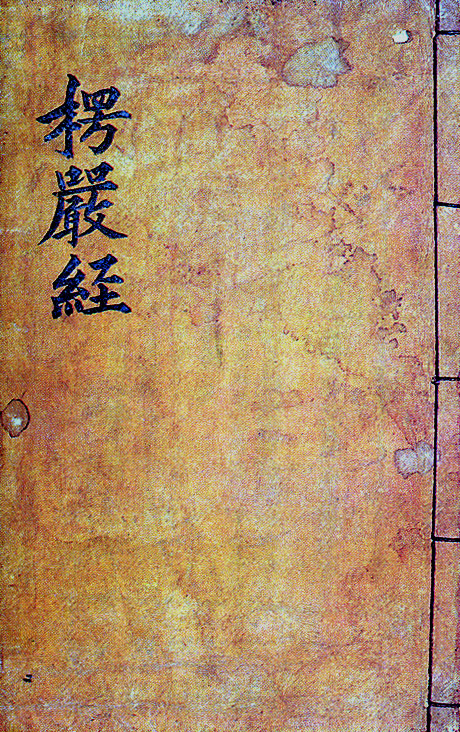 楞嚴經